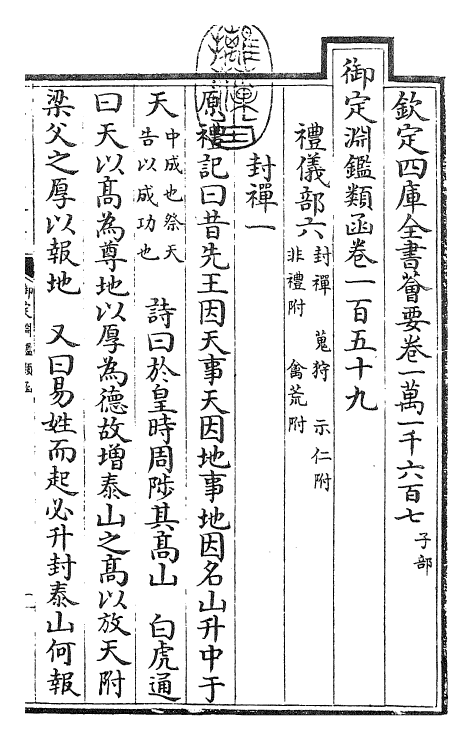 欽定四庫全書薈要卷一萬一千六百七 子部
御定淵鑑類函卷一百五十九
禮儀部六 封禪 蒐狩 示仁附
非禮附 禽荒附
封禪一
原禮記曰昔先王因天事天因地事地因名山升中于
天 中成也祭天
告以成功也 詩曰於皇時周陟其髙山 白虎通
曰天以髙為尊地以厚為德故增泰山之髙以放天附
梁父之厚以報地 又曰易姓而起必升封泰山何報
御定淵鑑類函
摛藻堂